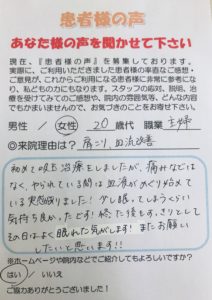 患者様の声
あなた様の声を聞かせて下さい
現在、『患者様の声』を募集しております。
実際に、ご利用いただきました患者様の率直なご感想・
ご意見が、これからご利用になる患者様に非常に参考にな
り、私どもの力にもなります。スタッフの応対、説明、治
療を受けてみてのご感想や、院内の雰囲気等、どんな内容
でもかまいませんので、お気づきのことをお寄せ下さい。
男性 / 女性 20歳代 職業 主婦
◎来院理由は? 肩こり、血流改善
初めて吸玉治療をしましたが、痛みなどは
なく、やられている間は血液がめぐり始めて
いる実感がありました! 少し眠ってしまうくらい
気持ち良かったです! 終わった後もすっきりとして
その日はよく眠れた気がします! またお願い
したいと思います!!
※ホームページや院内などでご紹介してもよろしいですか?
はい / いいえ
ご協力ありがとうございました!